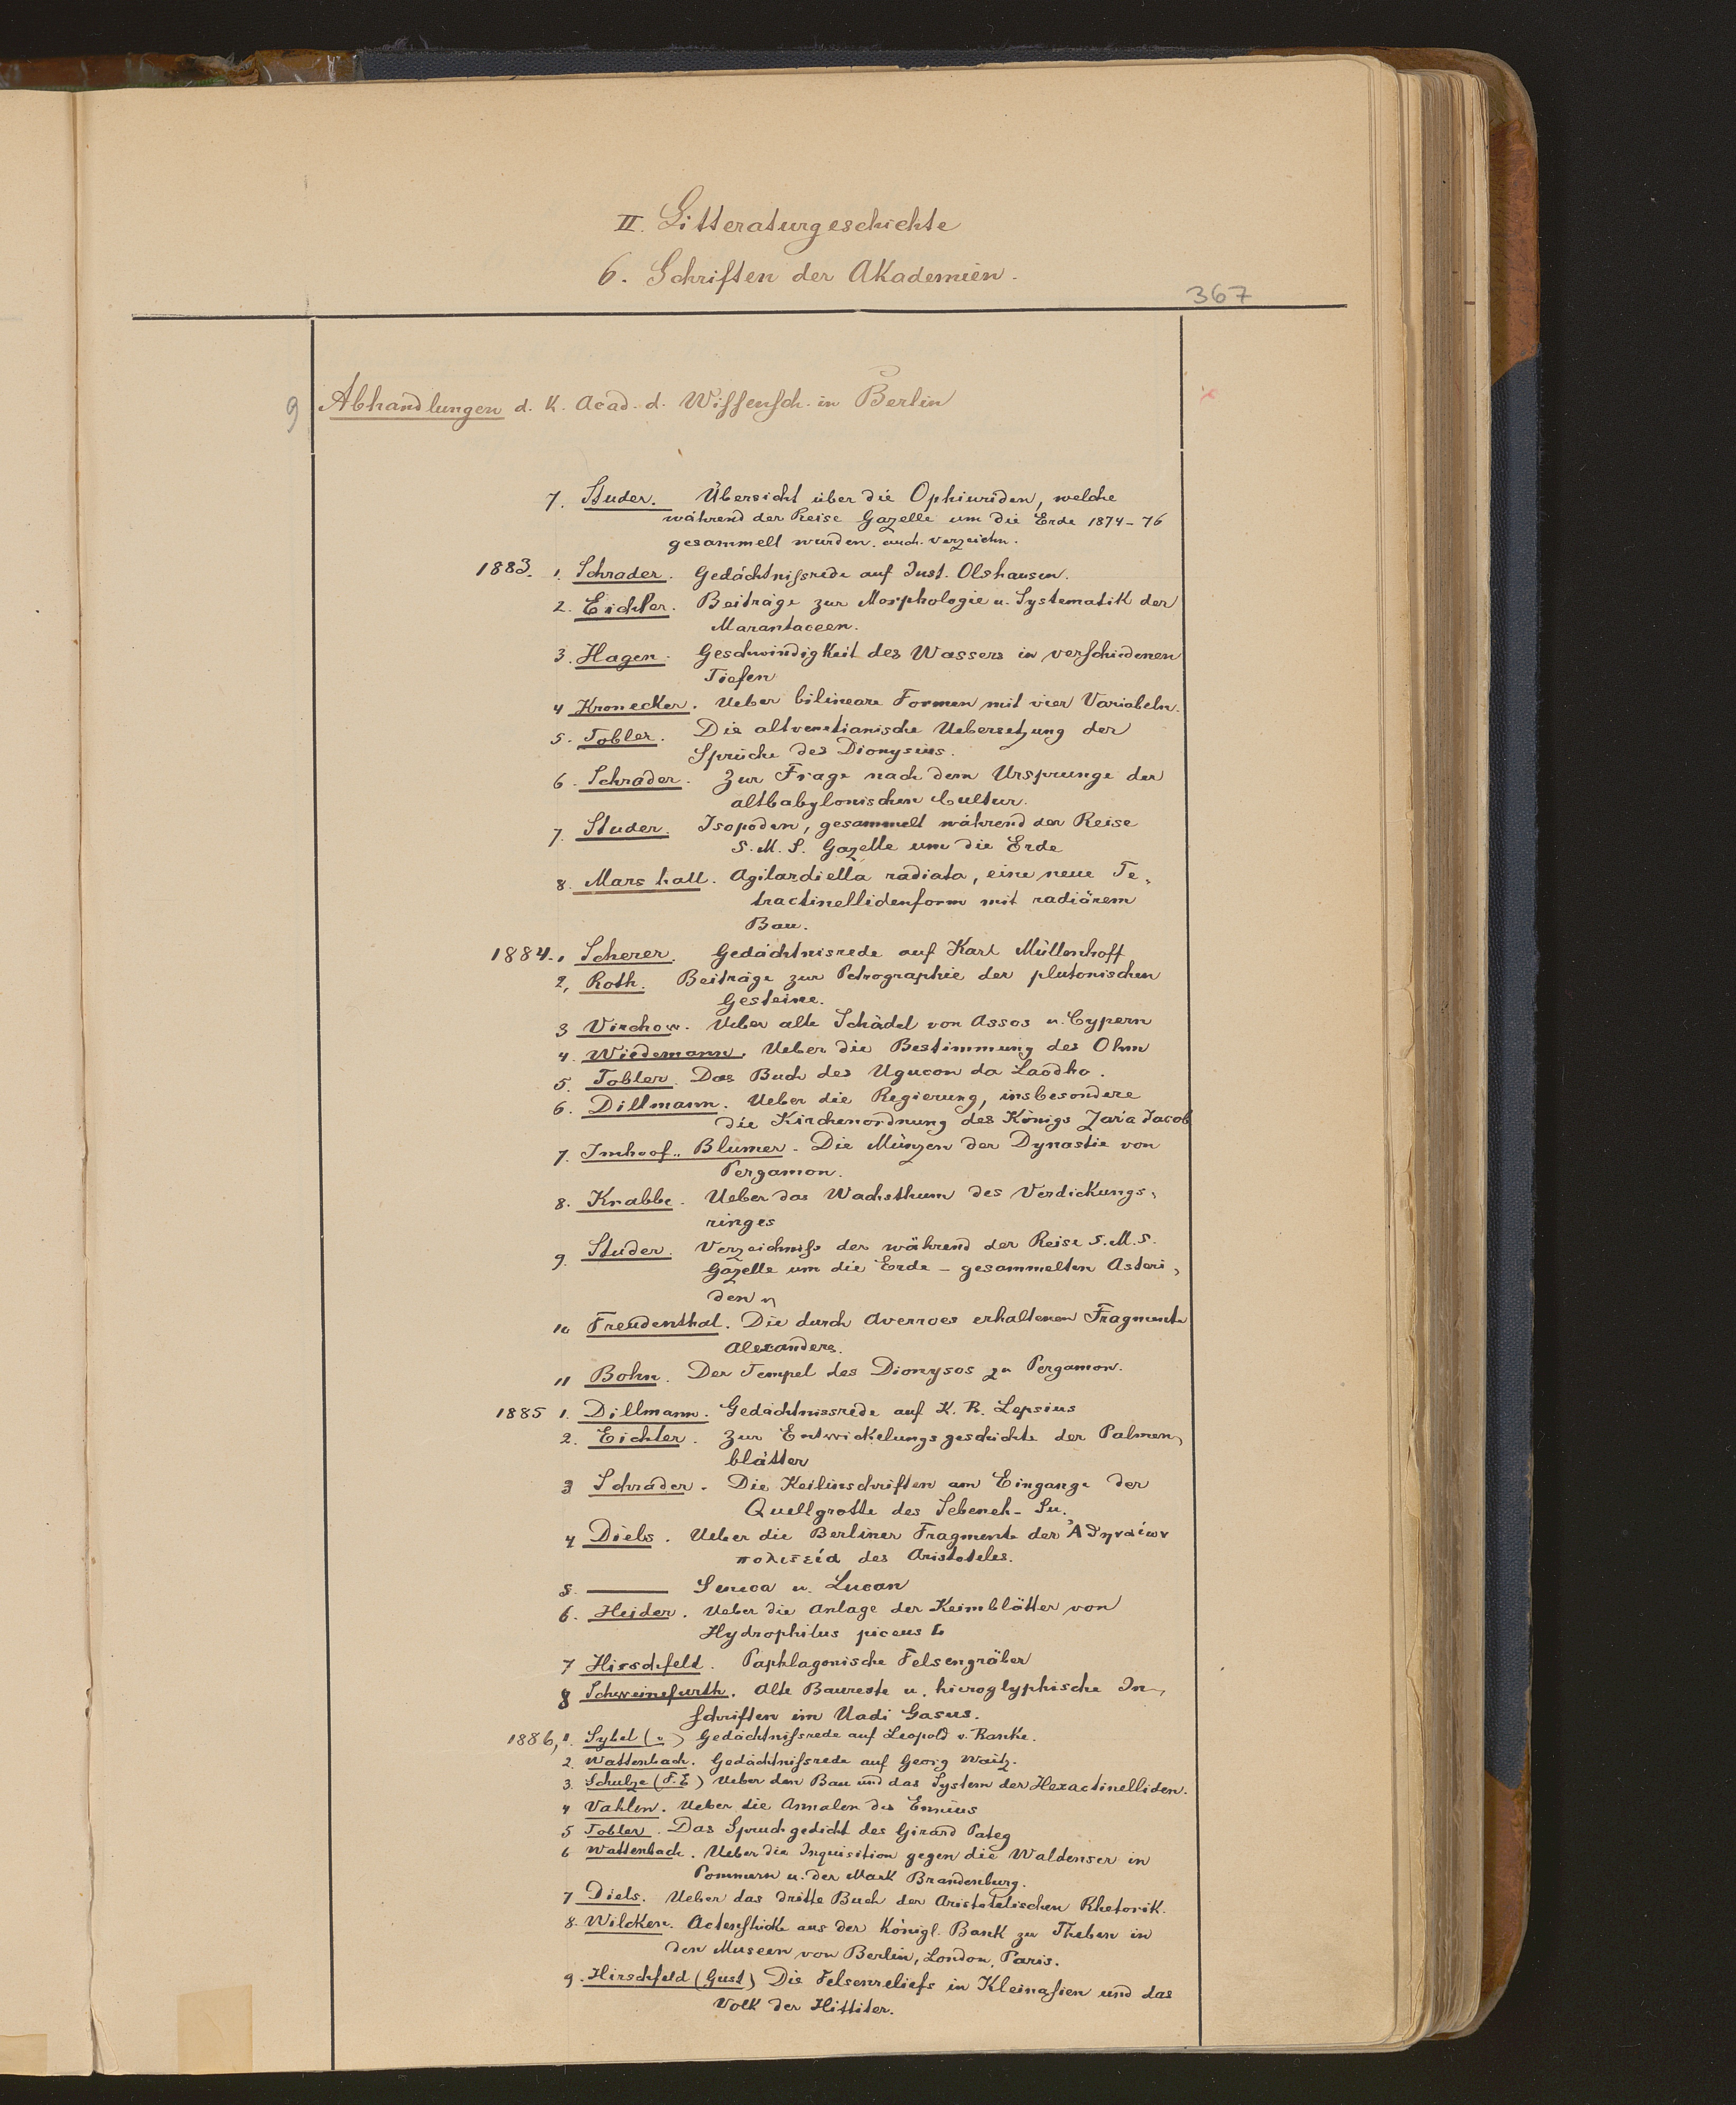 II. Litteraturgeschichte
6. Schriften der Akademien.
367
9 Abhandlungen d. K. Acad. d. Wissensch. in Berlin
7. Studer. Übersicht über die Ophiuriden, welche
während der Reise Gazelle um die Erde 1874-76
gesammelt wurden. auch. verzeichn.
1883. 1. Schrader. Gedächtnißrede auf Just. Olshausen.
2. Eichler. Beiträge zur Morphologie u. Systematik der
Marantaceen.
3. Hagen. Geschwindigkeit des Wassers in verschiedenen
Tiefen
4 Kronecker. Ueber bilineare Formen mit vier Variabeln.
5. Tobler. Die altvenetianische Uebersetzung der
Sprüche des Dionysius.
6. Schrader. Zur Frage nach dem Ursprunge der
altbabylonischen Cultur.
7. Studer. Isopoden, gesammelt während der Reise
S. M. S. Gazelle um die Erde
8. Marshall. Agilardiella radiata, eine neue Te-
tractinellidenform mit radiärem
Bau.
1884. 1 Scherer. Gedächtnisrede auf Karl Müllenhoff
2, Roth. Beiträge zur Petrographie der plutonischen
Gesteine.
3 Virchow. Ueber alte Schädel von Assos u. Cypern
4. Wiedemann. Ueber die Bestimmung des Ohm
5. Tobler. Das Buch des Uguçon da Laodho.
6. Dillmann. Ueber die Regierung, insbesondere
die Kirchenordnung des Königs Zar'a Jacob
7. Imhoof-Blumer. Die Münzen der Dynastie von
Pergamon.
8. Krabbe. Ueber das Wachsthum des Verdickungs-
ringes
9. Studer. Verzeichniß der während der Reise S. M. S.
Gazelle um die Erde - gesammelten Asteri-
den
10 Freudenthal. Die durch Averroes erhaltenen Fragmente
Alexanders.
11 Bohn. Der Tempel des Dionysos zu Pergamon.
1885 1. Dillmann. Gedächtnissrede auf K. R. Lepsius
2. Eichler. Zur Entwickelungsgeschichte der Palmen-
blätter
3 Schrader. Die Keilinschriften am Eingange der
Quellgrotte des Sebeneh-Su.
4 Diels. Ueber die Berliner Fragmente der Ἀθηναίων
πολιτεία des Aristoteles.
5. ——— Seneca u. Lucan
6. Heider. Ueber die Anlage der Keimblätter von
Hydrophilus piceus L
7 Hirschfeld. Paphlagonische Felsengräber
8 Schweinefurth. Alte Baureste u. hieroglyphische In-
schriften im Uadi Gasus.
1886, 1. Sybel (v.) Gedächtnißrede auf Leopold v. Ranke.
2. Wattenbach. Gedächtnißrede auf Georg Waitz.
3. Schulze (F. E) Ueber den Bau und das System der Hexactinelliden.
4 Vahlen. Ueber die Annalen des Ennius
5 Tobler. Das Spruchgedicht des Girard Pateg
6 Wattenbach. Ueber die Inquisition gegen die Waldenser in
Pommern u. der Mark Brandenburg.
7 Diels. Ueber das dritte Buch der Aristotelischen Rhetorik.
8. Wilcken. Actenstücke aus der Königl. Bank zu Theben in
den Museen von Berlin, London, Paris.
9. Hirschfeld (Gust) Die Felsenreliefs in Kleinasien und das
Volk der Hittiter.